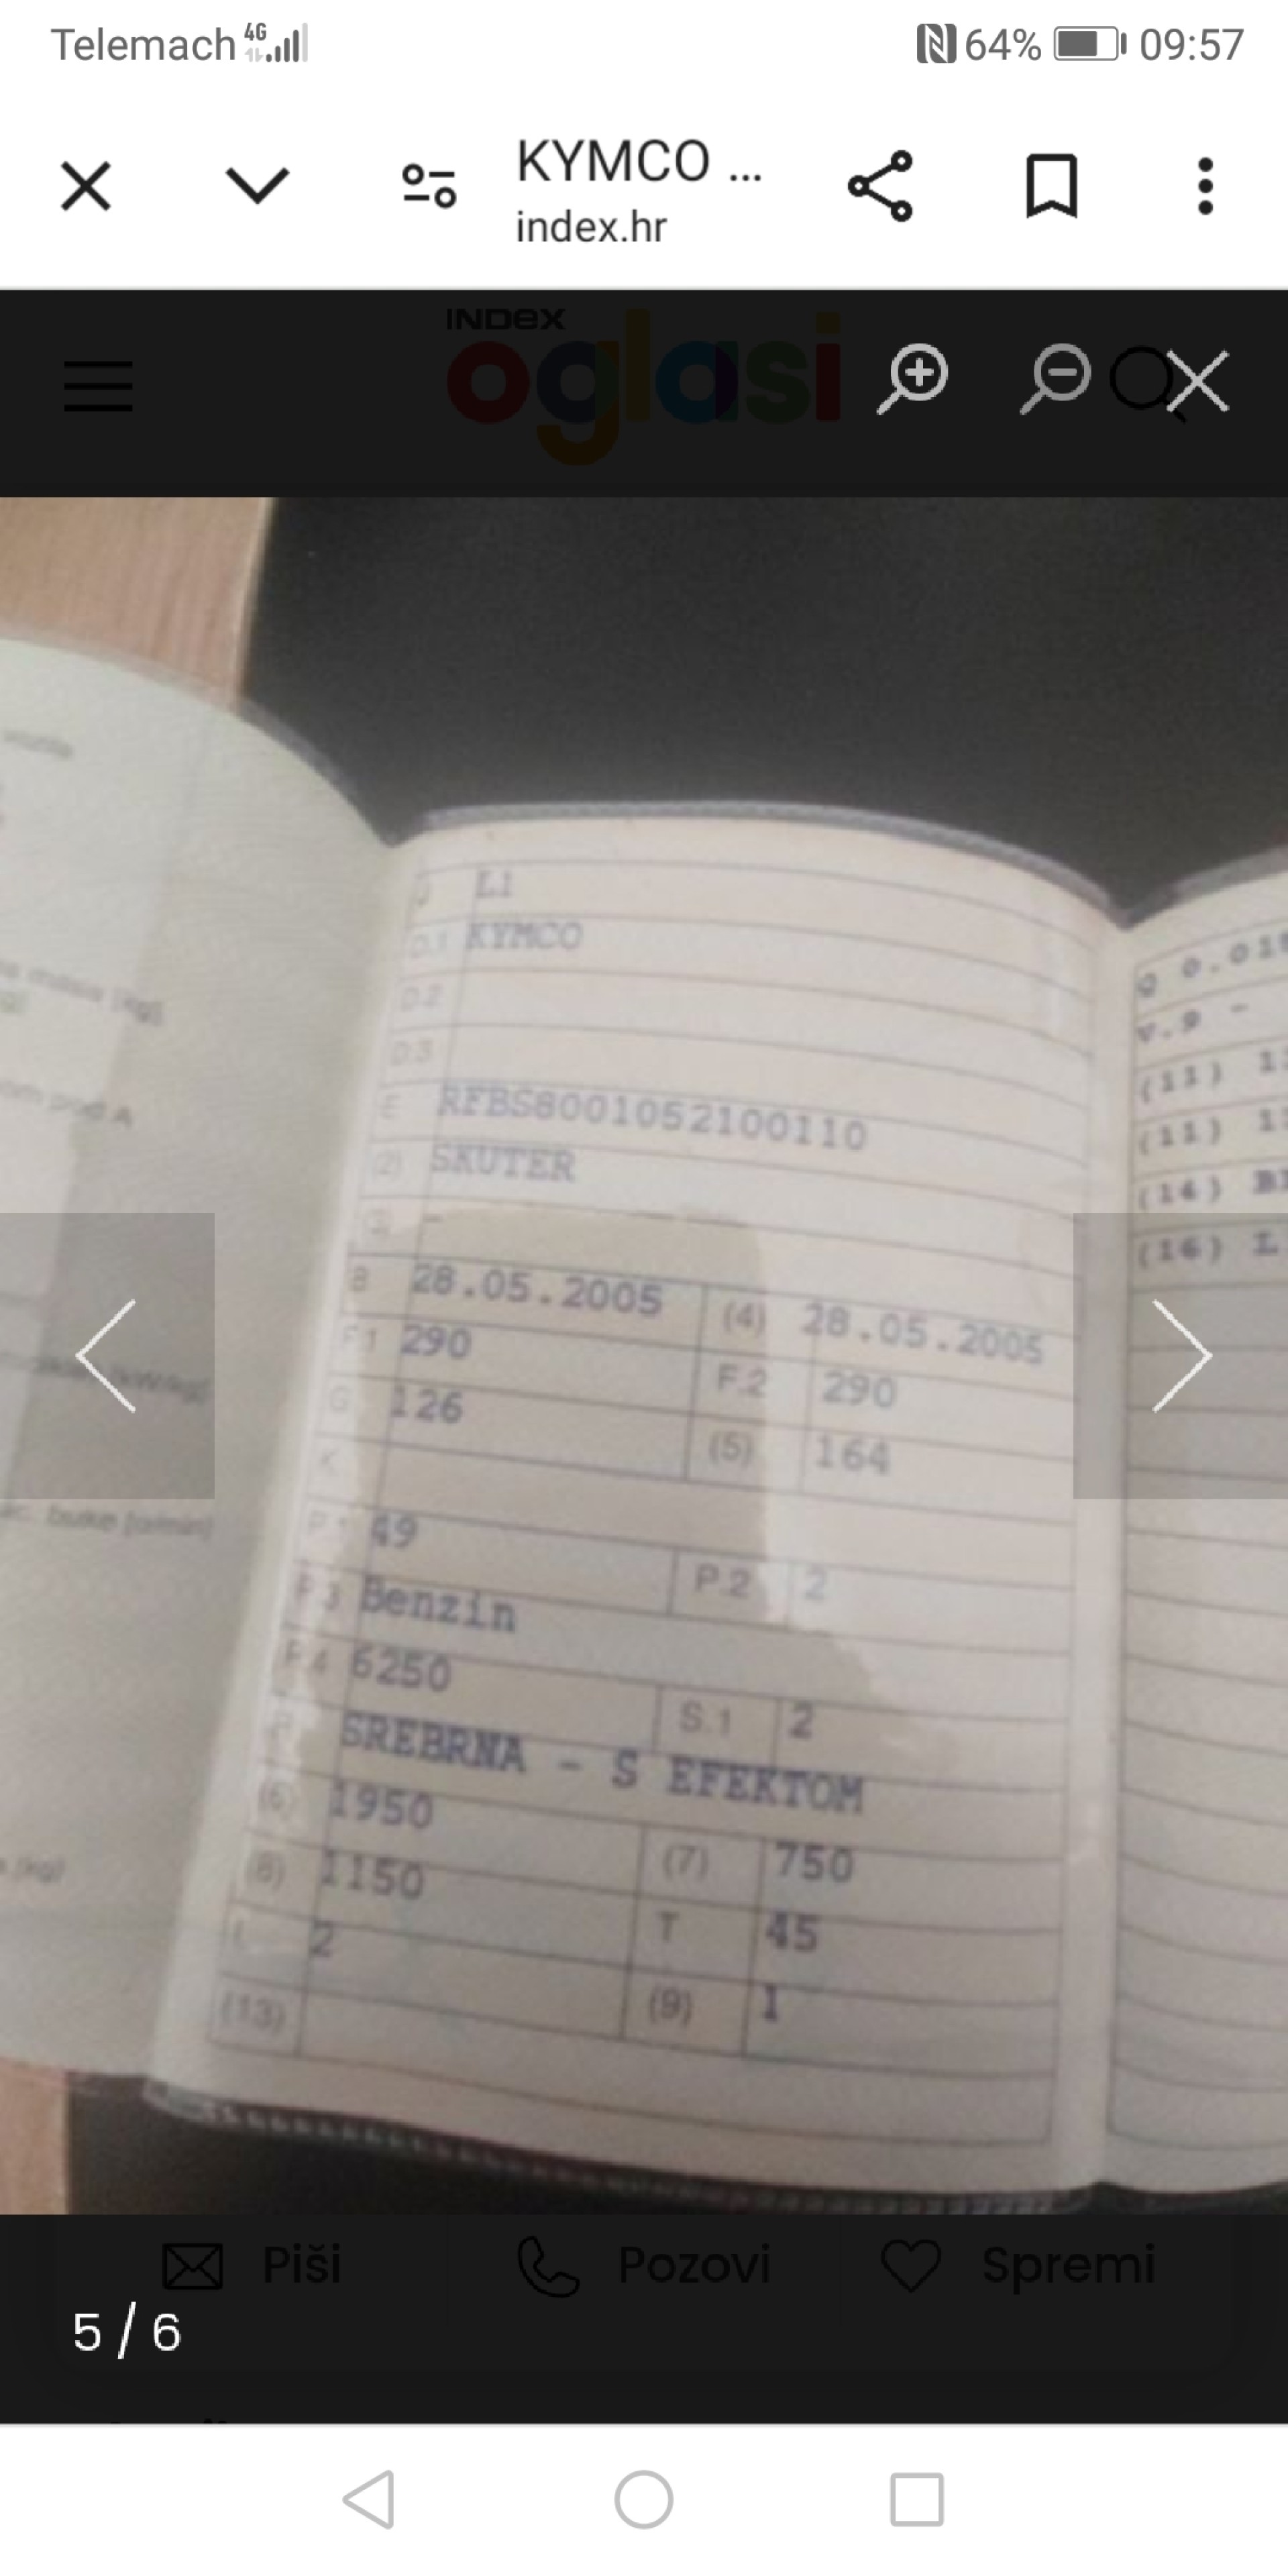 Telemach 4G 64% 09:57
KYMCO ...
index.hr
INDEX
oglasi
J L1
D.1 KYMCO
D.2
D.3
E RFBS8001052100110
(2) SKUTER
(3) -
B 28.05.2005 (4) 28.05.2005
F.1 290 F.2 290
G 126 (5) 164
K
P.1 49 P.2 2
P.3 Benzin
P.4 6250 S.1 2
R SREBRNA - S EFEKTOM
(6) 1950 (7) 750
(8) 1150 T 45
L 2 (9) 1
(13)
masa [kg]
[kW/kg]
buke [o/min]
[kg]
V.9 -
(11)
(11)
(14)
(16)
Piši Pozovi Spremi
5 / 6